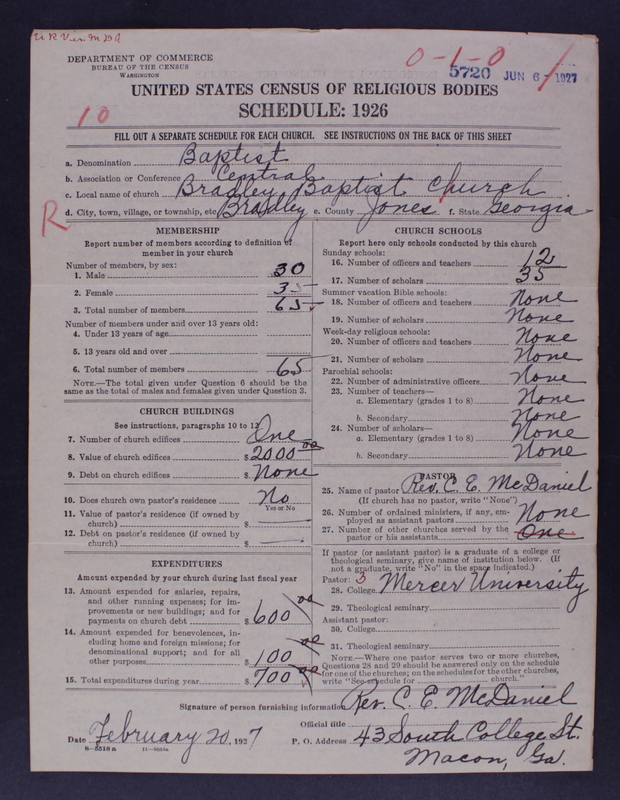 U.R.V. in M.D.R
DEPARTMENT OF COMMERCE
BUREAU OF THE CENSUS
WASHINGTON
0-1-0 1
5720 JUN 6 - 1927
UNITED STATES CENSUS OF RELIGIOUS BODIES
SCHEDULE: 1926
10
FILL OUT A SEPARATE SCHEDULE FOR EACH CHURCH. SEE INSTRUCTIONS ON THE BACK OF THIS SHEET
a. Denomination Baptist
b. Association or Conference Central
c. Local name of church Bradley Baptist Church
R
d. City, town, village, or township, etc Bradley e. County Jones f. State Georgia
MEMBERSHIP
Report number of members according to definition of
member in your church
Number of members, by sex:
1. Male 30
2. Female 35
3. Total number of members 65
Number of members under and over 13 years old:
4. Under 13 years of age
5. 13 years old and over
6. Total number of members 65
NOTE.—The total given under Question 6 should be the
same as the total of males and females given under Question 3.
CHURCH BUILDINGS
See instructions, paragraphs 10 to 12
7. Number of church edifices One
8. Value of church edifices $2000 00
9. Debt on church edifices $None
10. Does church own pastor's residence No
Yes or No
11. Value of pastor's residence (if owned by
church) $
12. Debt on pastor's residence (if owned by
church) $
EXPENDITURES
Amount expended by your church during last fiscal year
13. Amount expended for salaries, repairs,
and other running expenses; for im-
provements or new buildings; and for
payments on church debt $600 00
14. Amount expended for benevolences, in-
cluding home and foreign missions; for
denominational support; and for all
other purposes $100 00
15. Total expenditures during year $700 00
CHURCH SCHOOLS
Report here only schools conducted by this church
Sunday schools:
16. Number of officers and teachers 12
17. Number of scholars 35
Summer vacation Bible schools:
18. Number of officers and teachers None
19. Number of scholars None
Week-day religious schools:
20. Number of officers and teachers None
21. Number of scholars None
Parochial schools:
22. Number of administrative officers None
23. Number of teachers—
a. Elementary (grades 1 to 8) None
b. Secondary None
24. Number of scholars—
a. Elementary (grades 1 to 8) None
b. Secondary None
PASTOR
25. Name of pastor Rev. C. E. McDaniel
(If church has no pastor, write "None")
26. Number of ordained ministers, if any, em-
ployed as assistant pastors None
27. Number of other churches served by the
pastor or his assistants One
If pastor (or assistant pastor) is a graduate of a college or
theological seminary, give name of institution below. (If
not a graduate, write "No" in the space indicated.)
Pastor: 3
28. College Mercer University
29. Theological seminary
Assistant pastor:
30. College
31. Theological seminary
NOTE.—Where one pastor serves two or more churches,
Questions 28 and 29 should be answered only on the schedule
for one of the churches; on the schedules for the other churches,
write "See schedule for church."
Signature of person furnishing information Rev. C. E. McDaniel
Official title
Date February 20, 1927 P. O. Address 43 South College St.
Macon, Ga.